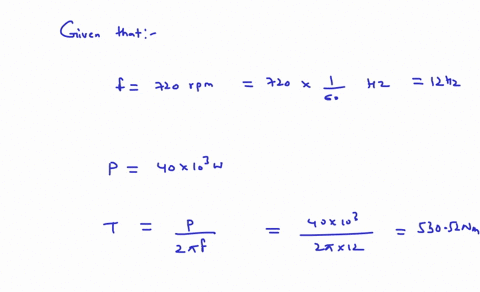 Given that:-
f = 720 rpm = 720 × 1/60 Hz = 12Hz
P = 40×10³ W
T = P/2πf = 40×10³/2π×12 = 530.52Nm